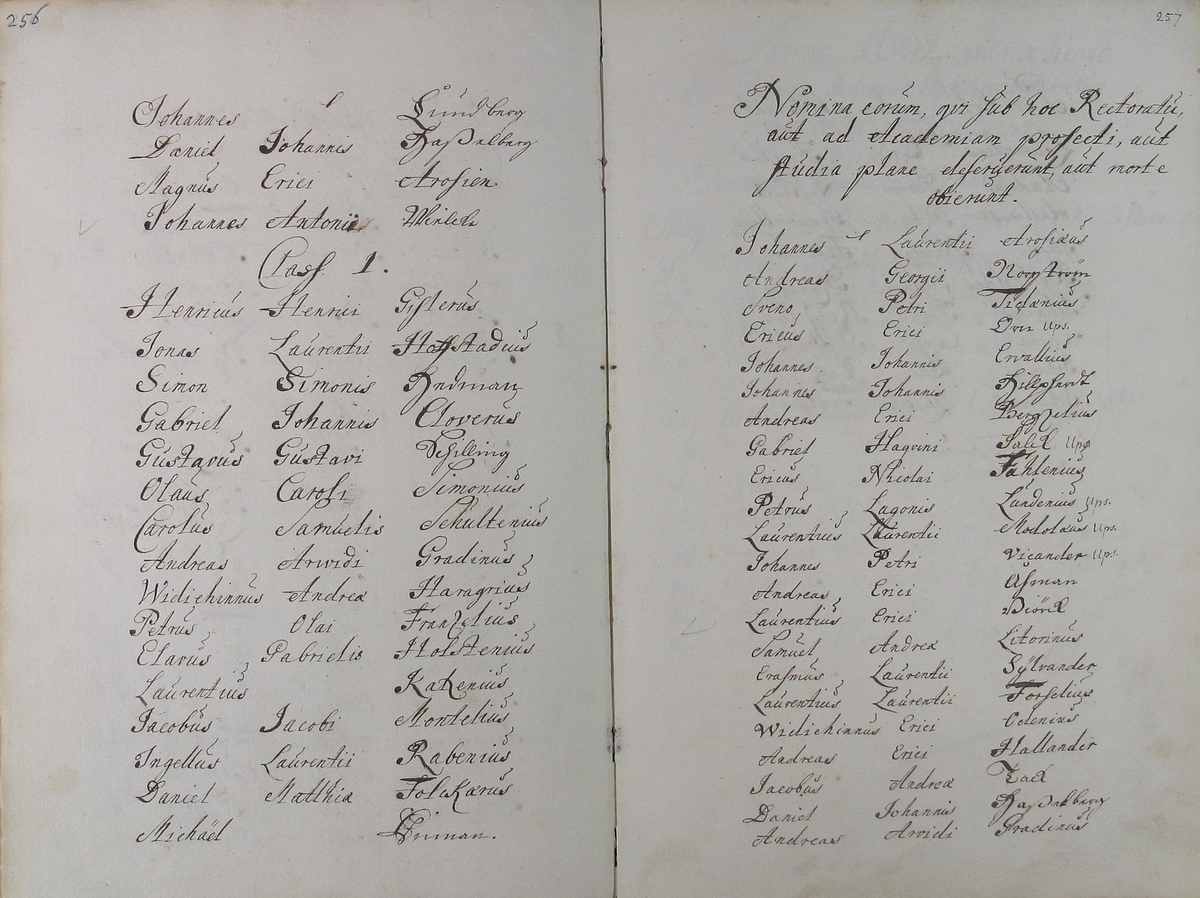 256
Johannes Lundberg
Daniel Johannis Haßelberg
Magnus Erici Arosien
Johannes Antonii
Class. 1.
Henricus Henrici Gisterus
Jonas Laurentii Haffstadius
Simon Simonis Hedman
Gabriel Johannis Cloverus
Gustavus Gustavi Schilling
Olaus Caroli Simonius
Carolus Samuelis Schultenius
Andreas Arwidi Gradinus
Widichinnus Andreæ Haragrius
Petrus Olai Franzelius
Elavus Gabrielis Holstenius
Laurentius Katzenius
Jacobus Jacobi Montelius
Ingellus Laurentii Rabenius
Daniel Matthiæ Folckærus
Michaël
257
Nomina eorum, qvi sub hoc Rectoratu,
aut ad Academiam profecti, aut
studia plane deseruerunt, aut morte
obierunt.
Johannes Laurentii Arosiæus
Andreas Georgii Norström
Sveno Petri Ticianius
Ericus Erici Ups.
Johannes Johannis Ervallius
Johannes Johannis Hillphardt
Andreas Erici Bergelius
Gabriel Haqvini Ups.
Ericus Nicolai Fahlenius
Petrus Lagonis Lundenius Ups.
Laurentius Laurentii Ups.
Johannes Petri Vicander Ups.
Andreas Erici Åsman
Laurentius Erici Biörck
Samuel Andreæ Litorinus
Erasmus Laurentii Sylvander
Laurentius Laurentii Forselius
Widichinnus Erici Odenius
Andreas Erici Hallander
Jacobus Andreæ
Daniel Johannis Haßelberg
Andreas Arvidi Gradinus